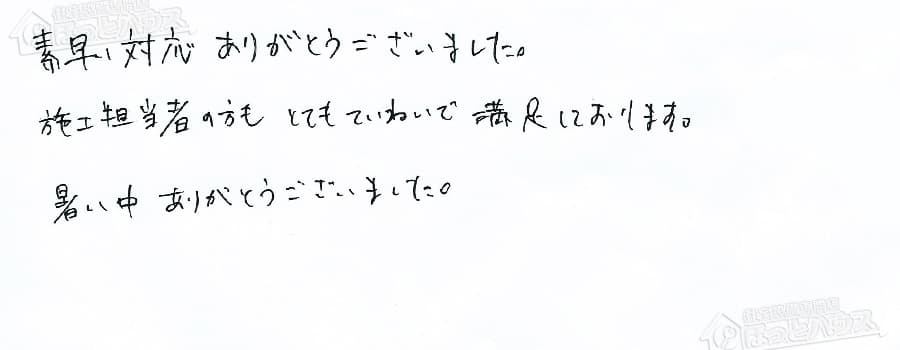 素早い対応 ありがとうございました。
施工担当者の方も とてもていねいで 満足しております。
暑い中 ありがとうございました。
ほっとハウス
ほっとハウス